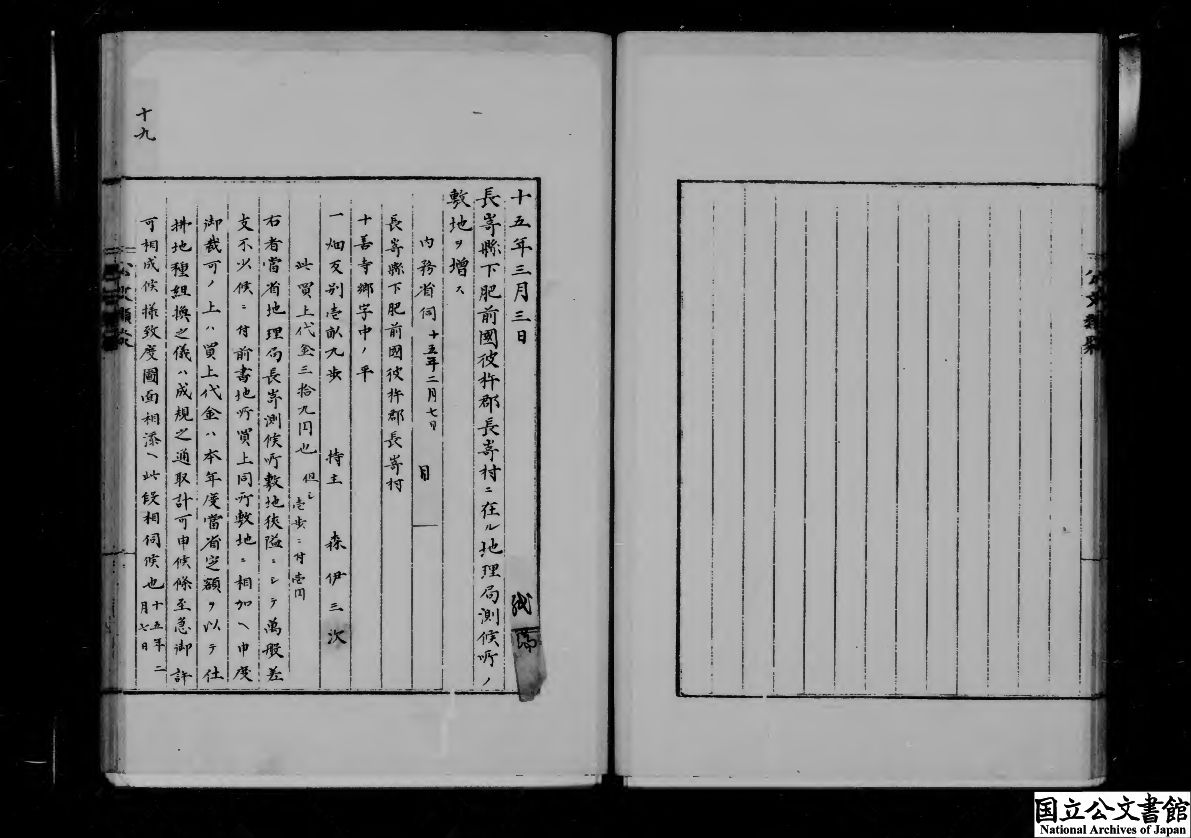 十五年三月三日
長崎縣下肥前國彼杵郡長崎村ニ在ル地理局測候所ノ
敷地ヲ增ス
内務省伺 十五年二月七日
長崎縣下肥前國彼杵郡長崎村
十善寺郷字中ノ平
一畑反別壱畝九歩 持主 森伊三次
此買上代金三拾九円也 但シ壱歩ニ付壱円
右者當省地理局長崎測候所敷地狹隘ニシテ萬般差
支不少候ニ付前書地所買上同所敷地ニ相加ヘ申度
御裁可ノ上ハ買上代金ハ本年度當省定額ヲ以テ仕
拂地種組換之儀ハ成規之通取計可申候條至急御許
可相成候樣致度圖面相添ヘ此段相伺候也 十五年二月七日
十九
公文類聚
国立公文書館
National Archives of Japan